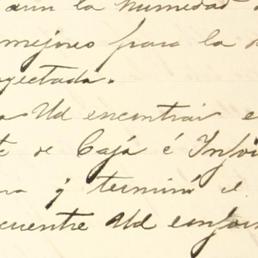 aun la humedad
mejores para la
yectada.
Ud encontrar e
te de Caja é Infor
ra y terminó el
cuentre Ud confor